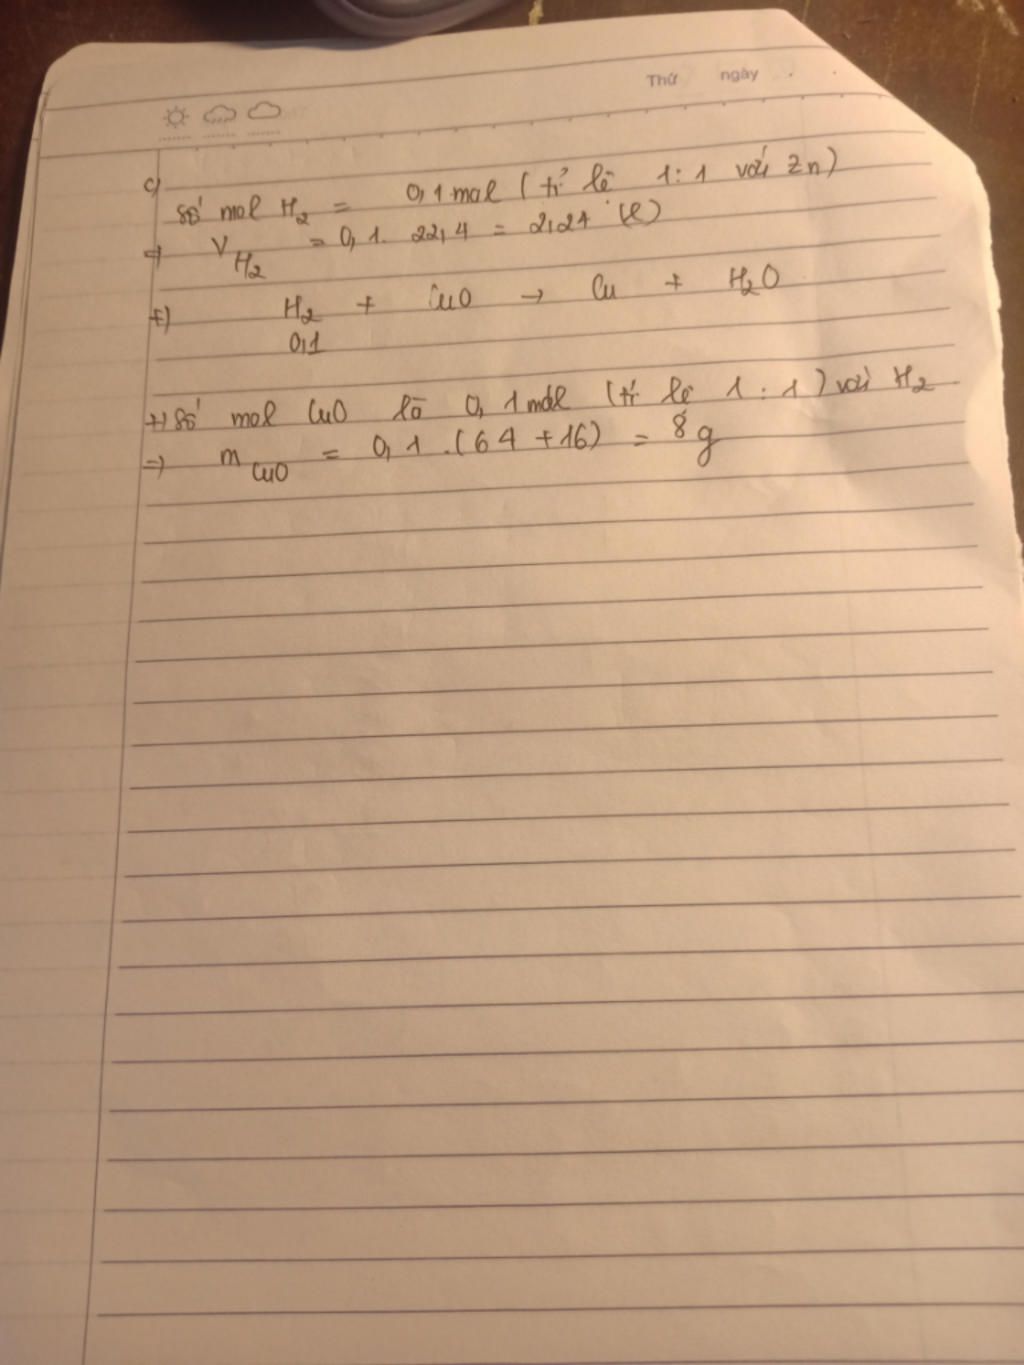 Thứ ngày
c)
số mol H₂ = 0,1 mol (tỉ lệ 1:1 với Zn)
⇒ V H₂ = 0,1. 22,4 = 2,24 (l)
+) H₂ + CuO → Cu + H₂O
0,1
+) số mol CuO là 0,1 mol (tỉ lệ 1:1) với H₂
=> m CuO = 0,1 .(64 +16) = 8 g